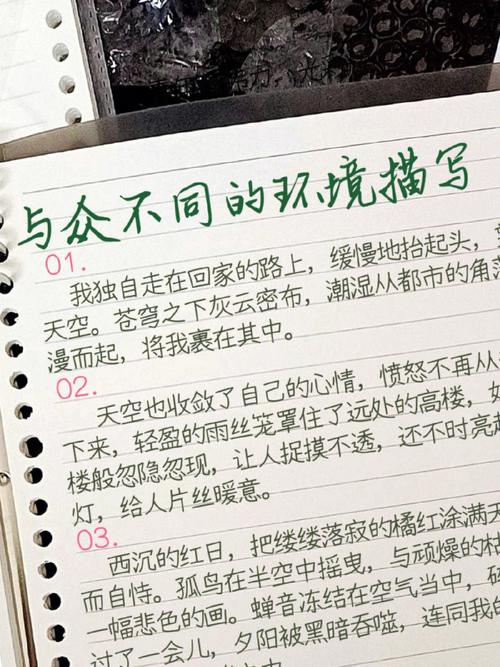 与众不同的环境描写
01.
我独自走在回家的路上，缓慢地抬起头，
天空。苍穹之下灰云密布，潮湿从都市的角落
漫而起，将我裹在其中。
02.
天空也收敛了自己的心情，愤怒不再从
下来，轻盈的雨丝笼罩住了远处的高楼，
楼般忽隐忽现，让人捉摸不透，还不时亮起
灯，给人片丝暖意。
03.
西沉的红日，把缕缕落寂的橘红涂满天
而自恃。孤鸟在半空中摇曳，与顽燥的
一幅悲色的画。蝉音冻结在空气当中，
过了一会儿，夕阳被黑暗吞噬，连同我